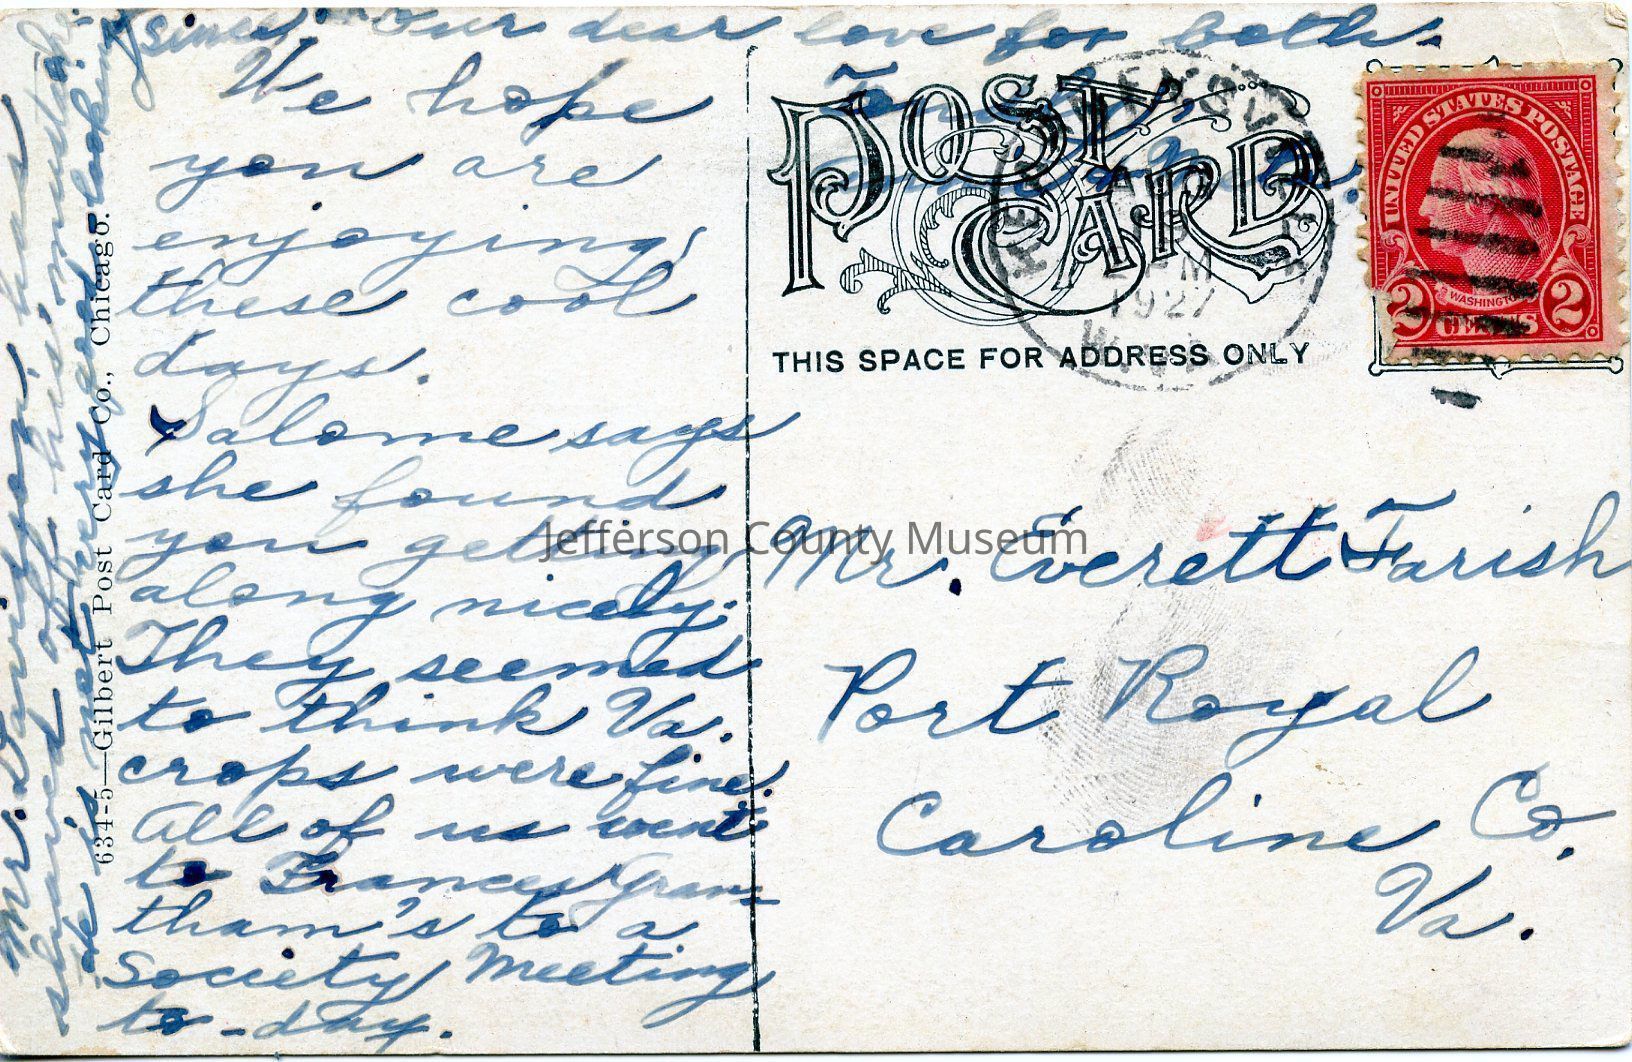 We hope
you are
enjoying
these cool
days.
Salome says
she found
you getting
along nicely.
They seemed
to think Va.
crops were fine.
All of us went
to Frances Gran-
tham's to a
Society Meeting
to-day.
Mr. Davis
shaved off his mustache
He is not very good looking
since. Our dear love for both.
Fondly,
POST CARD
THIS SPACE FOR ADDRESS ONLY
1927
W. VA.
UNITED STATES POSTAGE
WASHINGTON
2 CENTS 2
Mr. Everett Farish
Port Royal
Caroline Co.
Va.
634-5—Gilbert Post Card Co., Chicago.
Jefferson County Museum